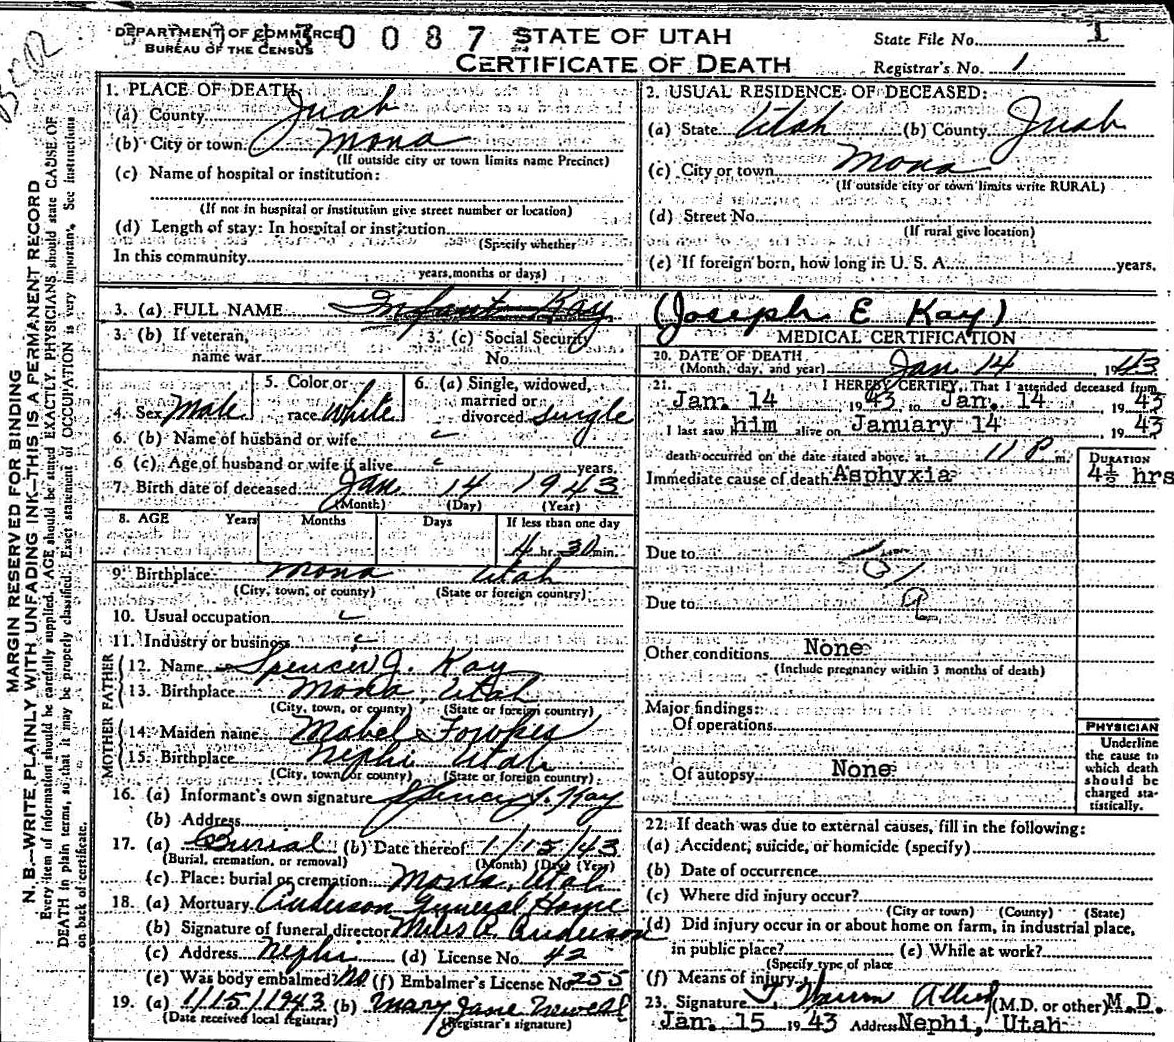 DEPARTMENT OF COMMERCE
BUREAU OF THE CENSUS
3 0 0 8 7
STATE OF UTAH
CERTIFICATE OF DEATH
State File No. 1
Registrar's No. 1
MARGIN RESERVED FOR BINDING
N. B.—WRITE PLAINLY WITH UNFADING INK—THIS IS A PERMANENT RECORD
Every item of information should be carefully supplied. AGE should be stated EXACTLY. PHYSICIANS should state CAUSE OF
DEATH in plain terms, so that it may be properly classified. Exact statement of OCCUPATION is very important. See instructions
on back of certificate.
1. PLACE OF DEATH:
(a) County Juab
(b) City or town Mona
(If outside city or town limits name Precinct)
(c) Name of hospital or institution:
(If not in hospital or institution give street number or location)
(d) Length of stay: In hospital or institution
(Specify whether
In this community
years, months or days)
2. USUAL RESIDENCE OF DECEASED:
(a) State Utah (b) County Juab
(c) City or town Mona
(If outside city or town limits write RURAL)
(d) Street No.
(If rural give location)
(e) If foreign born, how long in U. S. A. years.
3. (a) FULL NAME Infant Kay (Joseph E Kay)
3. (b) If veteran,
name war
3. (c) Social Security
No.
4. Sex Male
5. Color or
race White
6. (a) Single, widowed,
married or
divorced single
6. (b) Name of husband or wife
6 (c). Age of husband or wife if alive years.
7. Birth date of deceased Jan 14 1943
(Month) (Day) (Year)
8. AGE Years Months Days If less than one day
4 hr. 30 min.
9. Birthplace Mona Utah
(City, town, or county) (State or foreign country)
10. Usual occupation
11. Industry or business
FATHER
12. Name Spencer J. Kay
13. Birthplace Mona, Utah
(City, town, or county) (State or foreign country)
MOTHER
14. Maiden name Mabel Fowkes
15. Birthplace Nephi Utah
(City, town or county) (State or foreign country)
16. (a) Informant's own signature Spencer J. Kay
(b) Address
17. (a) Burial (b) Date thereof 1/15/43
(Burial, cremation, or removal) (Month) (Day) (Year)
(c) Place: burial or cremation Mona, Utah
18. (a) Mortuary Anderson Funeral Home
(b) Signature of funeral director Miles A. Anderson
(c) Address Nephi (d) License No. 42
(e) Was body embalmed? No (f) Embalmer's License No. 255
19. (a) 1/15/1943 (b) Mary Jane Newell
(Date received local registrar) (Registrar's signature)
MEDICAL CERTIFICATION
20. DATE OF DEATH
(Month, day, and year) Jan 14, 1943
21. I HEREBY CERTIFY, That I attended deceased from
Jan. 14 1943 to Jan. 14 1943
I last saw him alive on January 14, 1943
death occurred on the date stated above, at 11 P m.
DURATION
Immediate cause of death Asphyxia 4½ hrs
Due to
Due to
Other conditions None
(Include pregnancy within 3 months of death)
Major findings:
Of operations
Of autopsy None
PHYSICIAN
Underline
the cause to
which death
should be
charged sta-
tistically.
22. If death was due to external causes, fill in the following:
(a) Accident, suicide, or homicide (specify)
(b) Date of occurrence
(c) Where did injury occur?
(City or town) (County) (State)
(d) Did injury occur in or about home on farm, in industrial place,
in public place? (e) While at work?
(Specify type of place
(f) Means of injury
23. Signature (M.D. or other) M.D.
Jan. 15 1943 Address Nephi, Utah